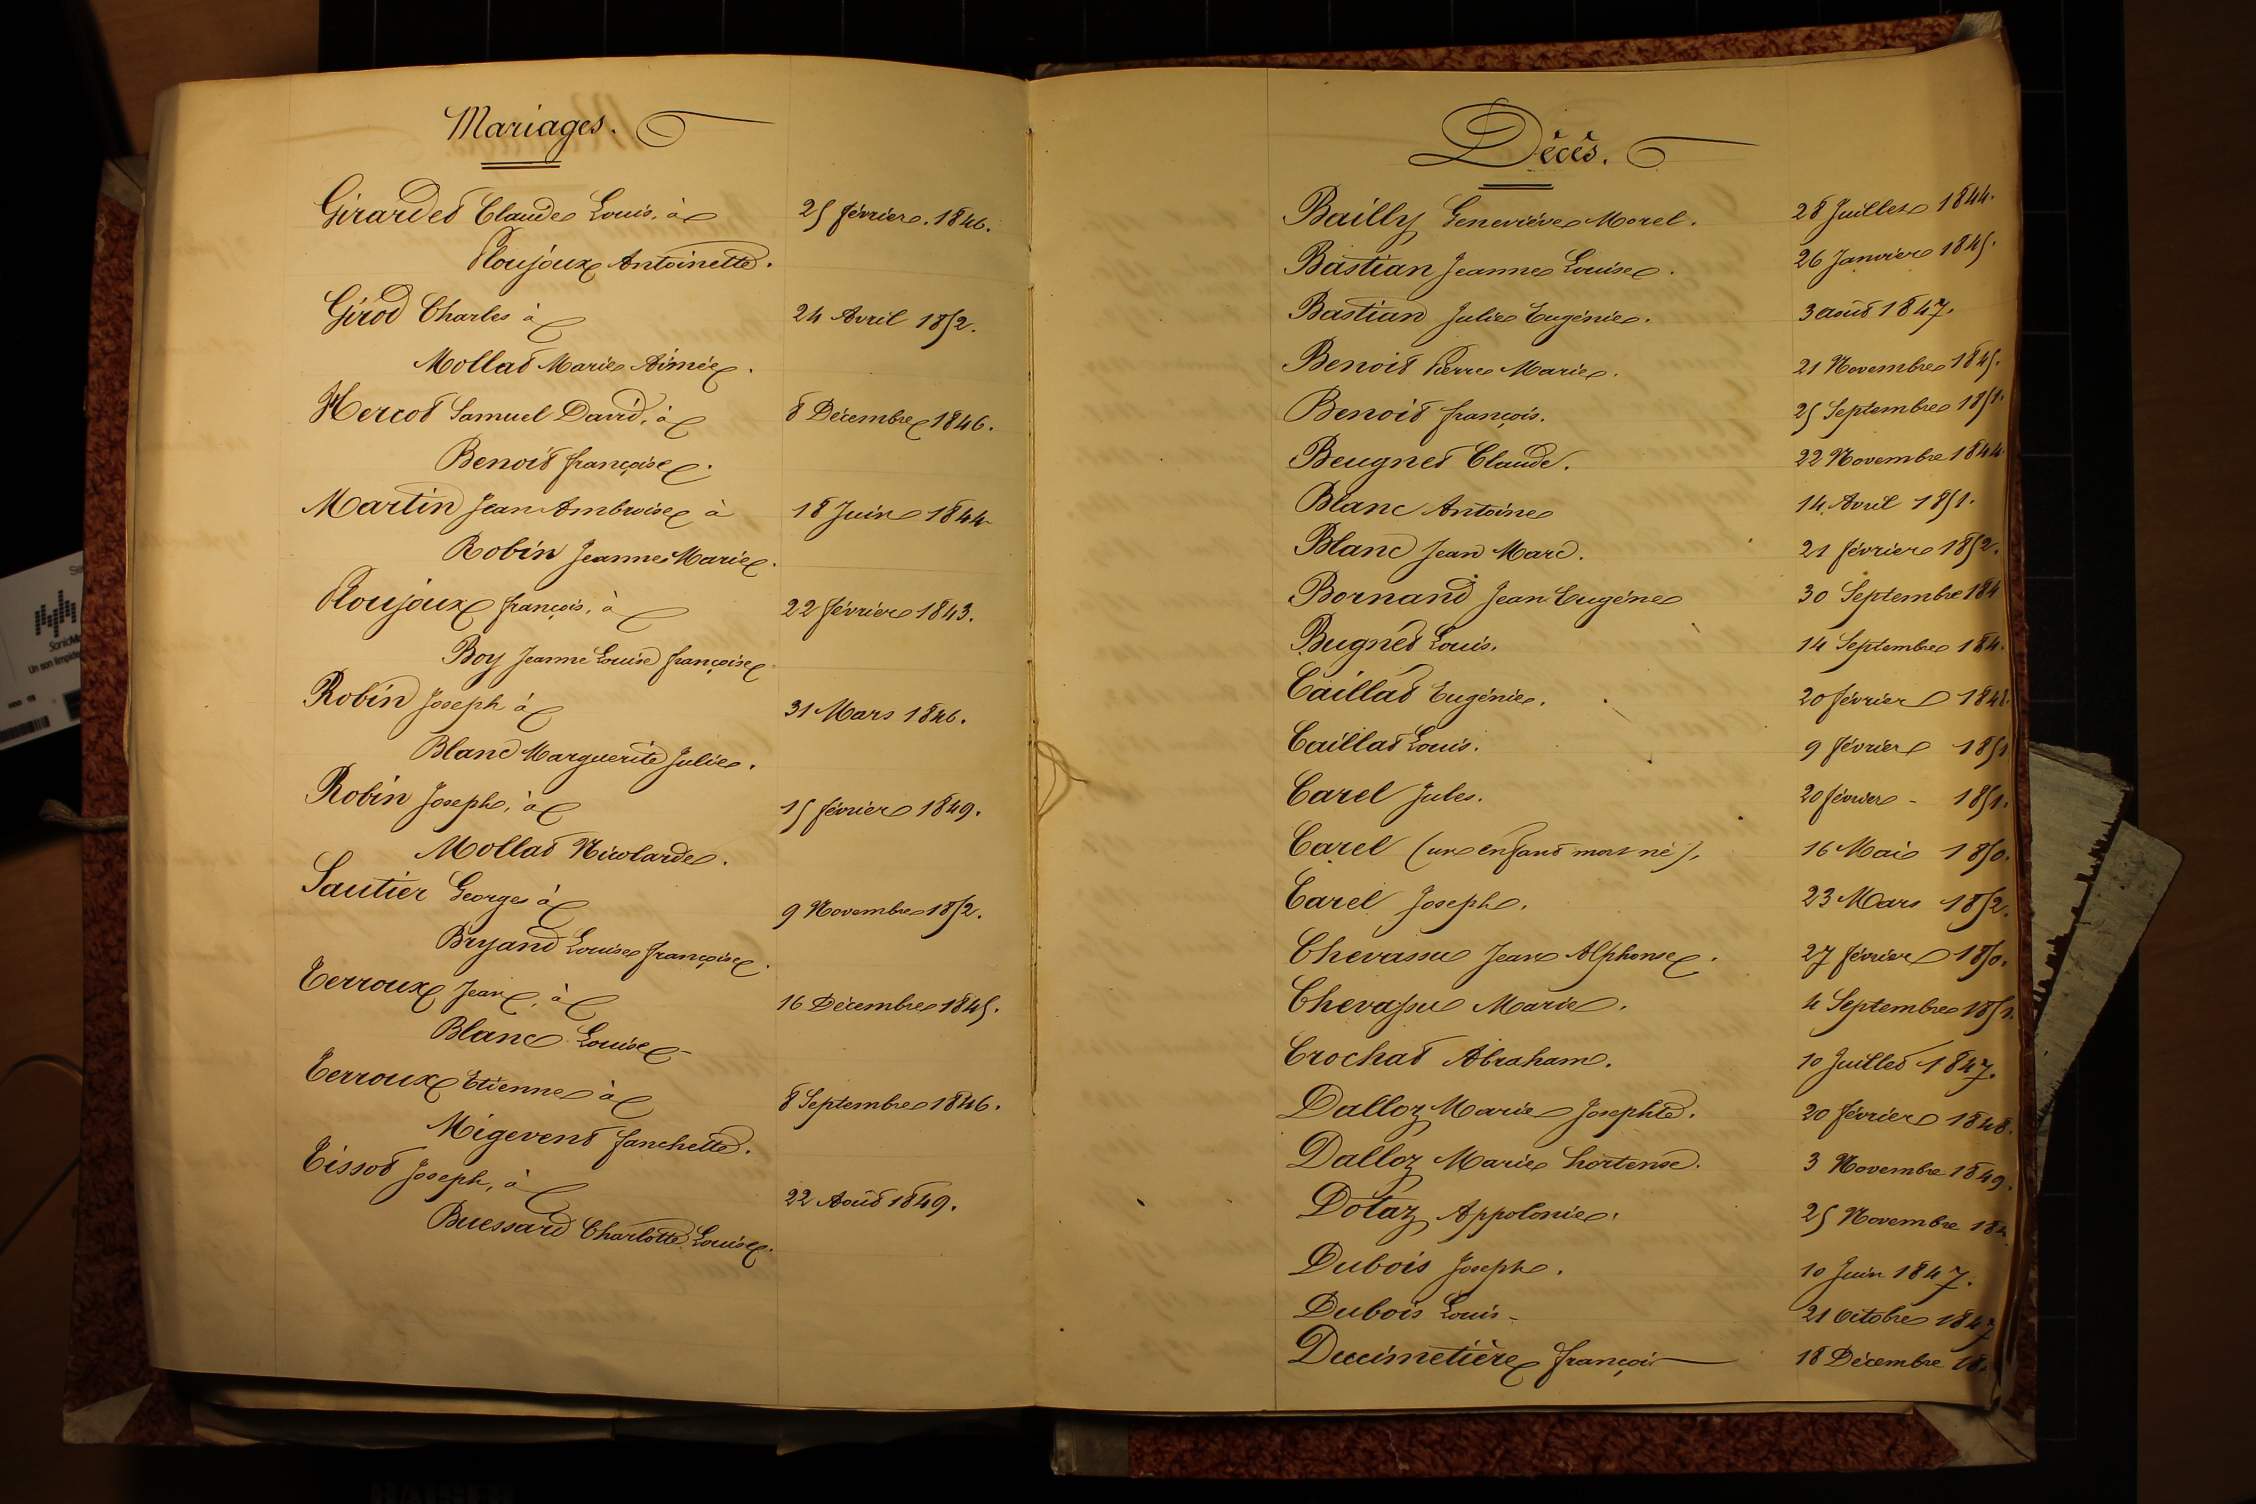 Mariages.
Girardet Claude Louis, à 25 février. 1846.
Ploujoux Antoinette.
Girod Charles à 24 Avril 1852.
Mollat Marie Aimée.
Hercot Samuel David, à 8 Décembre 1846.
Benoit françoise.
Martin Jean Ambroise à 18 Juin 1844
Robin Jeanne Marie.
Ploujoux françois, à 22 février 1843.
Boy Jeanne Louise françoise
Robin Joseph à 31 Mars 1846.
Blanc Marguerite Julie.
Robin Joseph, à 15 février 1849.
Mollat Nicolarde.
Sautier Georges à 9 Novembre 1852.
Bryand Louise françoise.
Terroux Jean, à 16 Décembre 1845.
Blanc Louise
Terroux Etienne à 8 Septembre 1846.
Migevent fanchette.
Tissot Joseph, à 22 Août 1849.
Buessard Charlotte Louise.
Décès.
Bailly Geneviève Morel. 28 Juillet 1844.
Bastian Jeanne Louise. 26 Janvier 1845.
Bastian Julie Eugénie. 3 août 1847.
Benoit Pierre Marie. 21 Novembre 1845.
Benoit françois. 25 Septembre 1851.
Beugnet Claude. 22 Novembre 1844
Blanc Antoine 14 Avril 1851.
Blanc Jean Marc. 21 février 1852.
Bornand Jean Eugène 30 Septembre 184
Bugnet Louis. 14 Septembre 184
Caillat Eugénie. 20 février 1848.
Caillat Louis. 9 février 1851
Carel Jules. 20 février - 1851.
Carel (un enfant mort né). 16 Mai 1850.
Carel Joseph. 23 Mars 1852.
Chevassu Jean Alphonse. 27 février 1850.
Chevassu Marie. 4 Septembre 1851.
Crochat Abraham. 10 Juillet 1847.
Dalloz Marie Josephte. 20 février 1848.
Dalloz Marie hortense. 3 Novembre 1849.
Dotaz Appolonie. 25 Novembre 184
Dubois Joseph. 10 Juin 1847.
Dubois Louis - 21 Octobre 1847
Ducimetière françois 18 Décembre 18